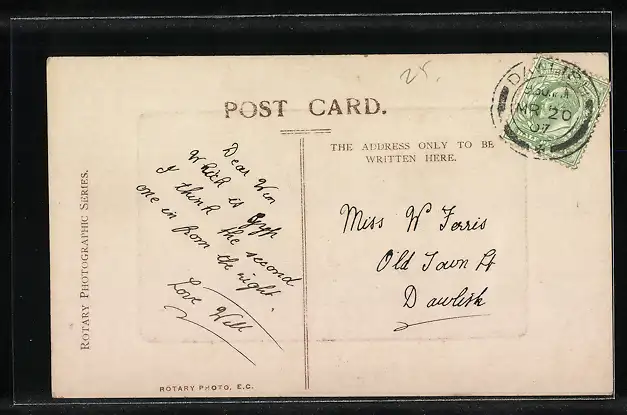 25.
POST CARD.
THE ADDRESS ONLY TO BE
WRITTEN HERE.
DAWLISH
MR 20
07
Dear Win
Which is Gyp
I think the second
one in from the right.
Love Will
Miss W Ferris
Old Town St
Dawlish
ROTARY PHOTOGRAPHIC SERIES.
ROTARY PHOTO, E.C.